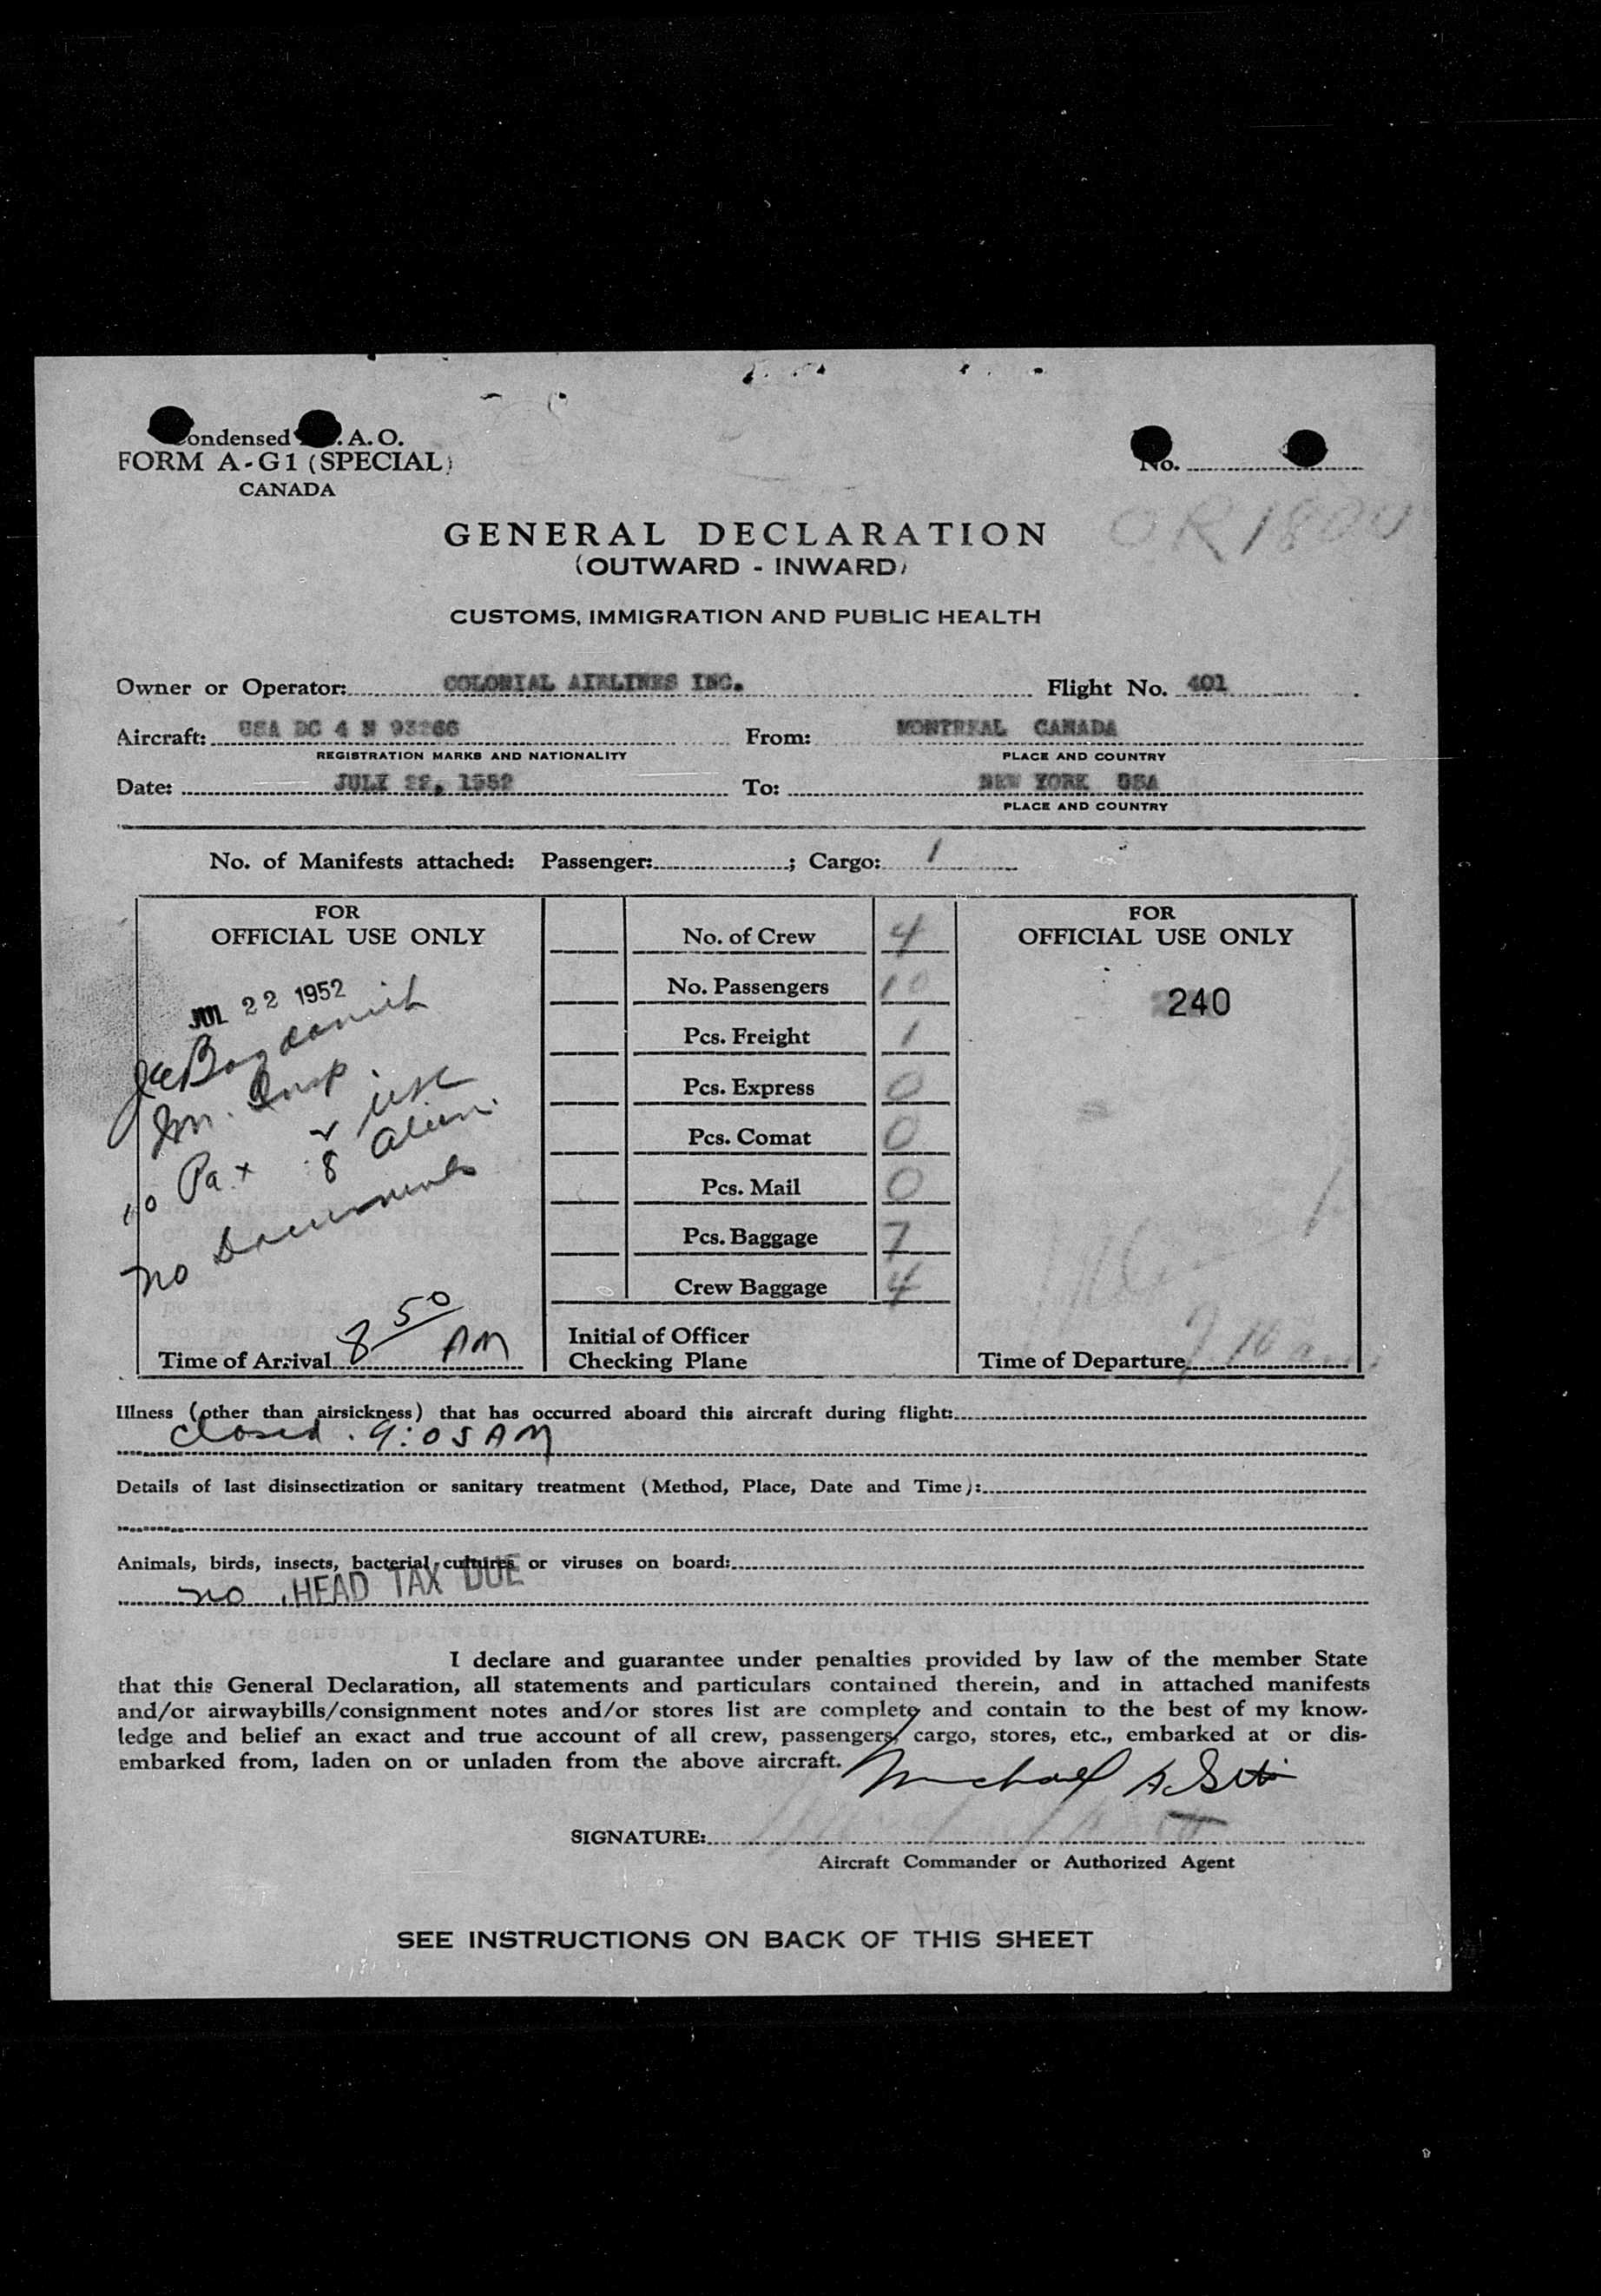 Condensed A.O.
FORM A-G1 (SPECIAL)
CANADA
No.
OR1800
GENERAL DECLARATION
(OUTWARD - INWARD)
CUSTOMS, IMMIGRATION AND PUBLIC HEALTH
Owner or Operator: COLONIAL AIRLINES INC. Flight No. 401
Aircraft: USA DC 4 N 93266 From: MONTREAL CANADA
REGISTRATION MARKS AND NATIONALITY PLACE AND COUNTRY
Date: JULY 22, 1952 To: NEW YORK USA
PLACE AND COUNTRY
No. of Manifests attached: Passenger: ; Cargo: 1
FOR
OFFICIAL USE ONLY
JUL 22 1952
Im. Insp.
10 Pax 2 USC
8 Alien
No Documents
Time of Arrival 8 50 AM
No. of Crew 4
No. Passengers 10
Pcs. Freight 1
Pcs. Express 0
Pcs. Comat 0
Pcs. Mail 0
Pcs. Baggage 7
Crew Baggage 4
Initial of Officer
Checking Plane
FOR
OFFICIAL USE ONLY
240
Time of Departure 7.10 am
Illness (other than airsickness) that has occurred aboard this aircraft during flight:
Closed. 9:05 AM
Details of last disinsectization or sanitary treatment (Method, Place, Date and Time):
Animals, birds, insects, bacterial cultures or viruses on board:
no HEAD TAX DUE
I declare and guarantee under penalties provided by law of the member State
that this General Declaration, all statements and particulars contained therein, and in attached manifests
and/or airwaybills/consignment notes and/or stores list are complete and contain to the best of my know-
ledge and belief an exact and true account of all crew, passengers, cargo, stores, etc., embarked at or dis-
embarked from, laden on or unladen from the above aircraft.
Michael A
SIGNATURE:
Aircraft Commander or Authorized Agent
SEE INSTRUCTIONS ON BACK OF THIS SHEET